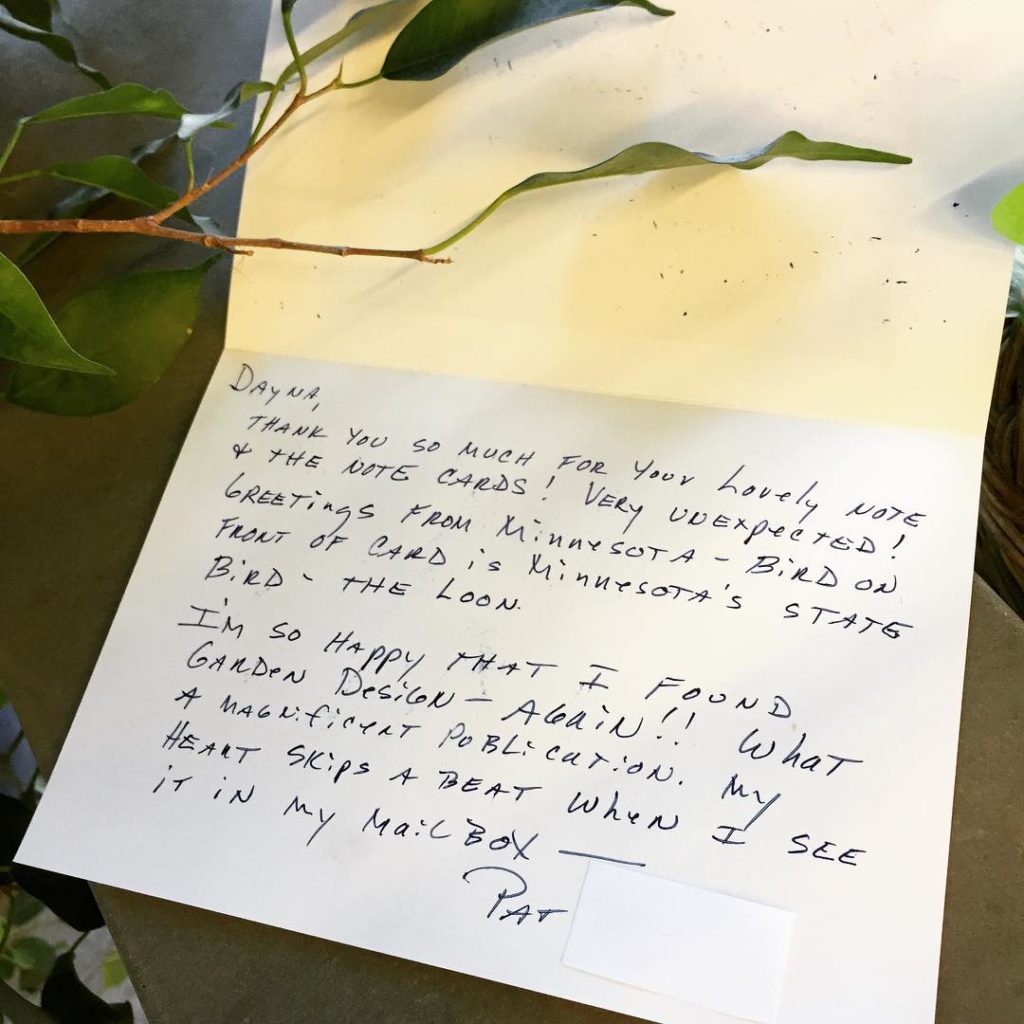 Dayna,
THANK YOU SO MUCH FOR YOUR Lovely NOTE
& THE NOTE CARDS! VERY UNEXPECTED!
GREETINGS FROM MINNESOTA - BIRD ON
FRONT OF CARD IS MINNESOTA'S STATE
BIRD - THE LOON.
I'M SO HAPPY THAT I FOUND
GARDEN DESIGN - AGAIN!! WHAT
A MAGNIFICENT PUBLICATION. MY
HEART SKIPS A BEAT WHEN I SEE
IT IN MY MAILBOX —
PAT